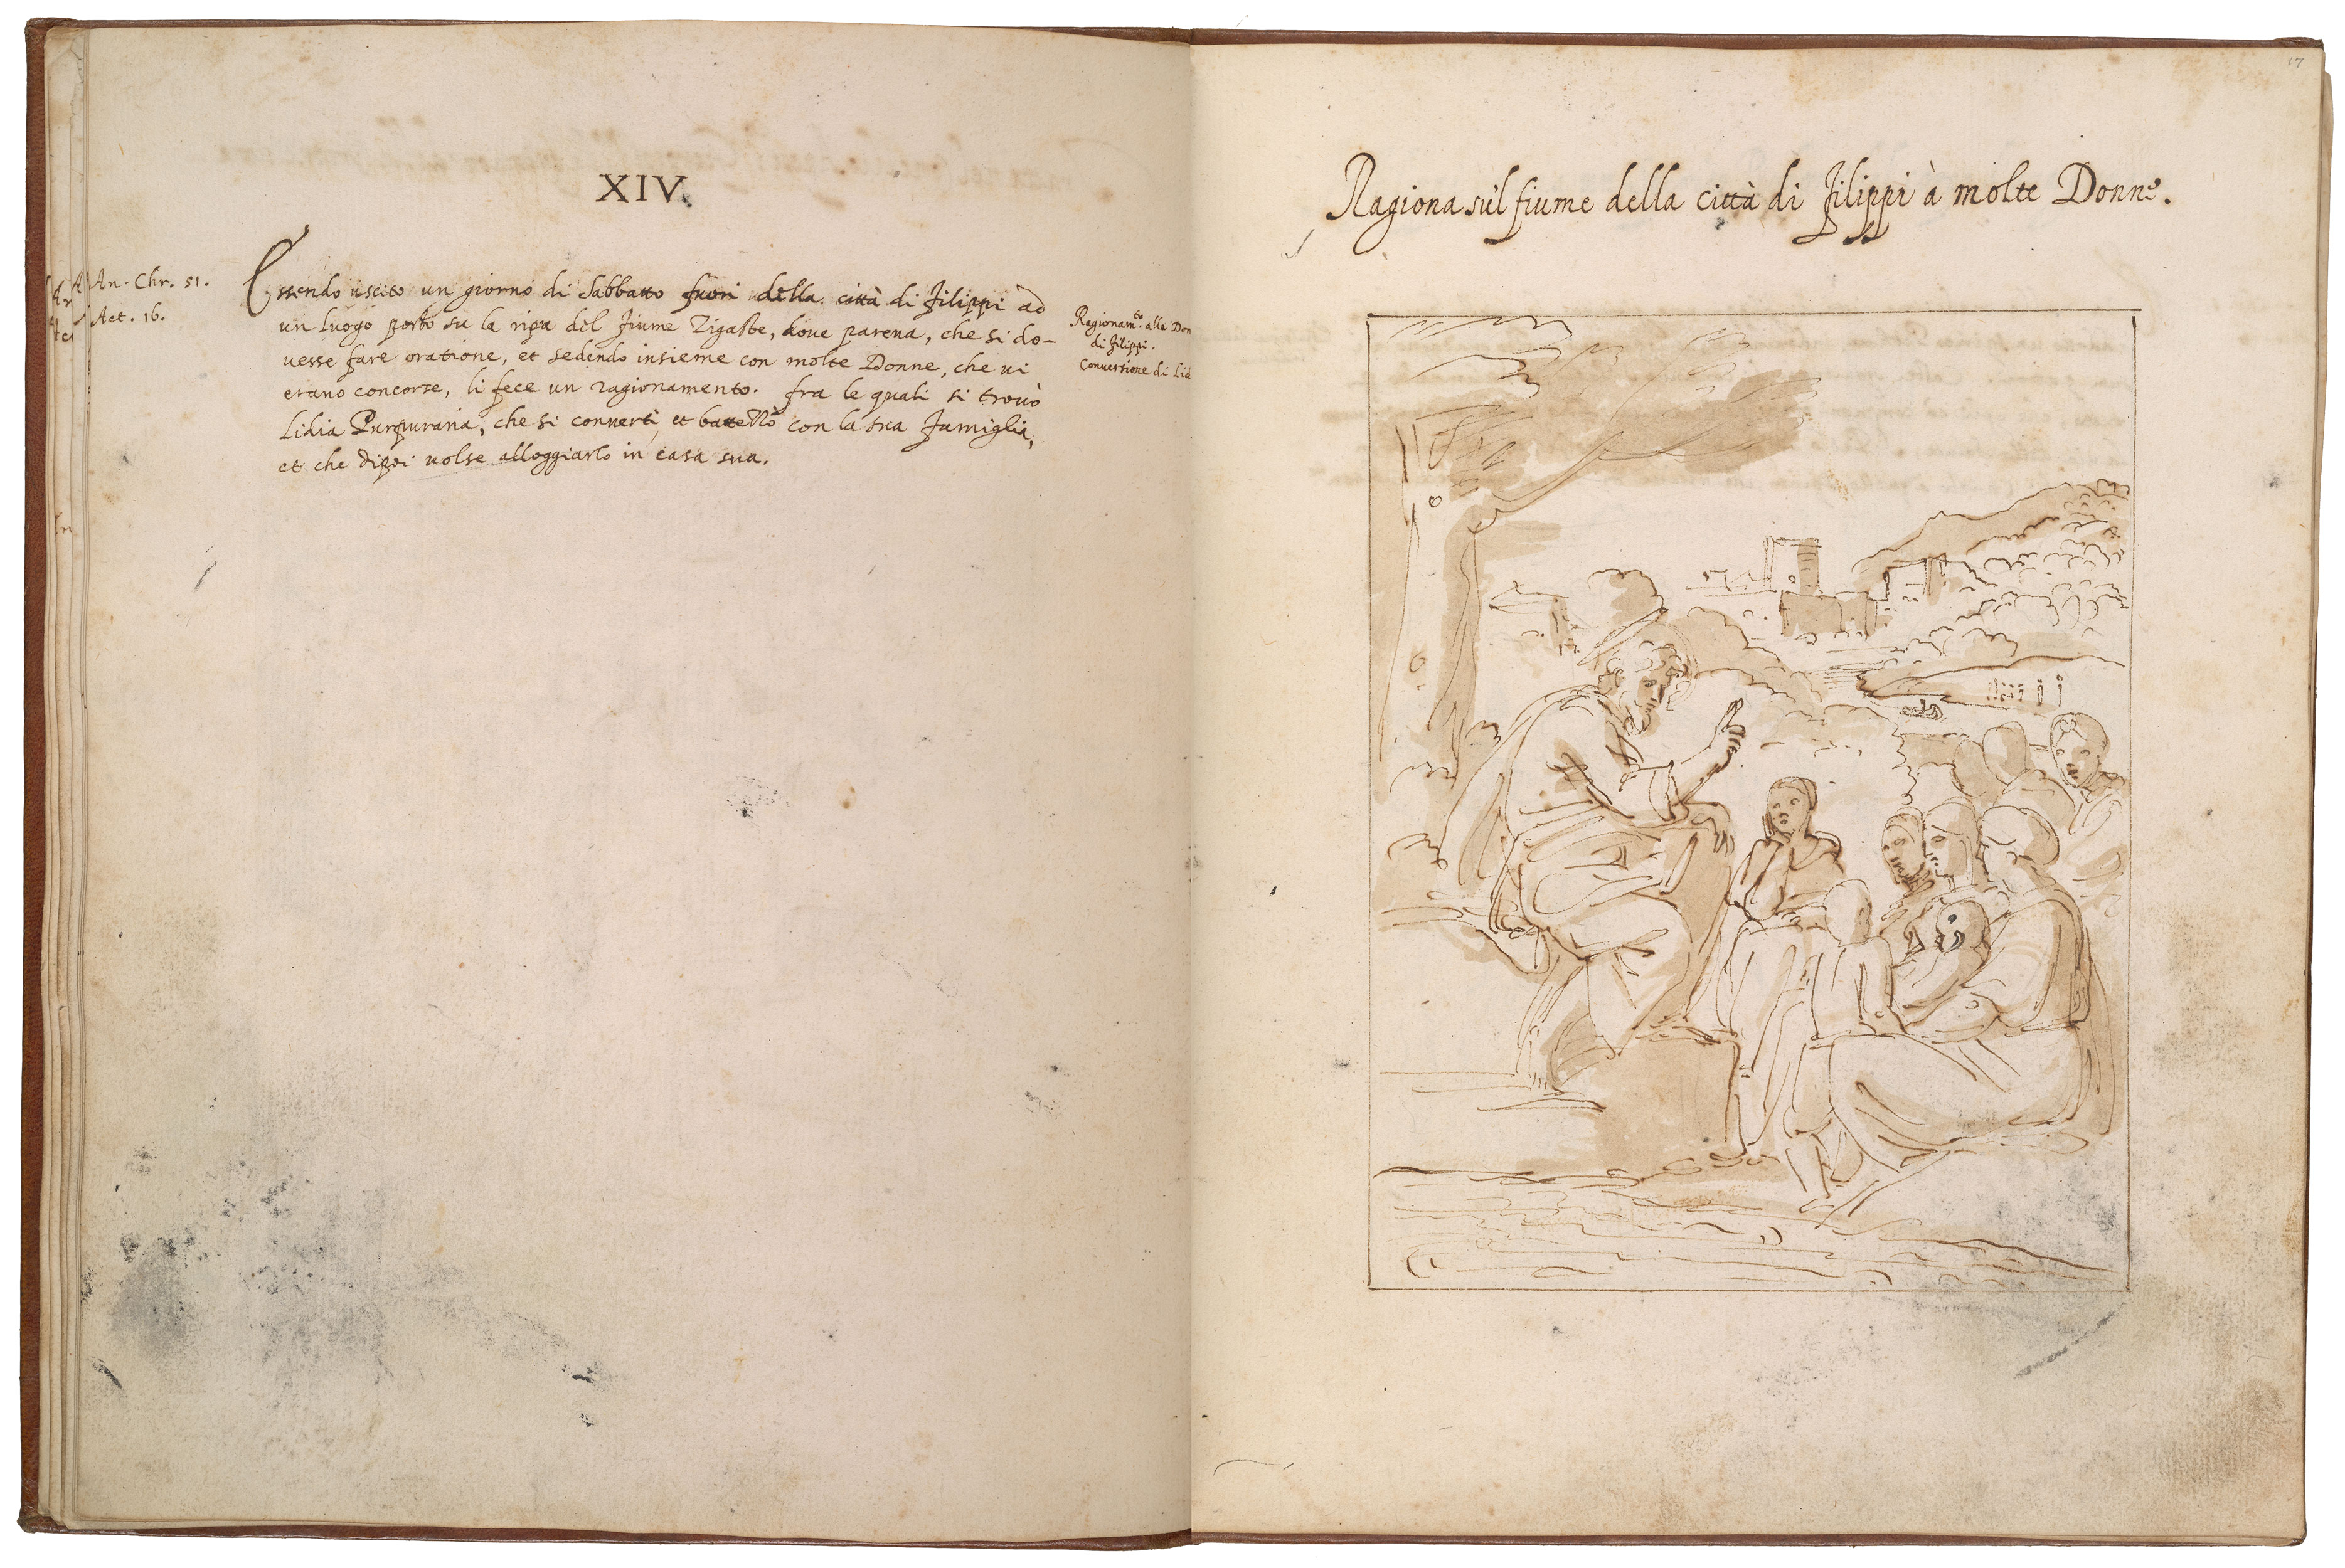 XIV.
An. Chr. 51.
Act. 16.
Essendo uscito un giorno di Sabbatto fuori della città di Filippi ad
un luogo posto su la ripa del fiume Zigaste, dove pareua, che si do-
uesse fare oratione, et sedendo insieme con molte Donne, che ui
erano concorse, li fece un ragionamento. fra le quali si trouò
Lidia Purpuraria, che si conuertì, et con la sua famiglia,
et che dipoi uolse alloggiarlo in casa sua.
Ragionam.to alle Don
di Filippi.
Conuersione di Lid
17
Ragiona sùl fiume della città di Filippi à molte Donne.